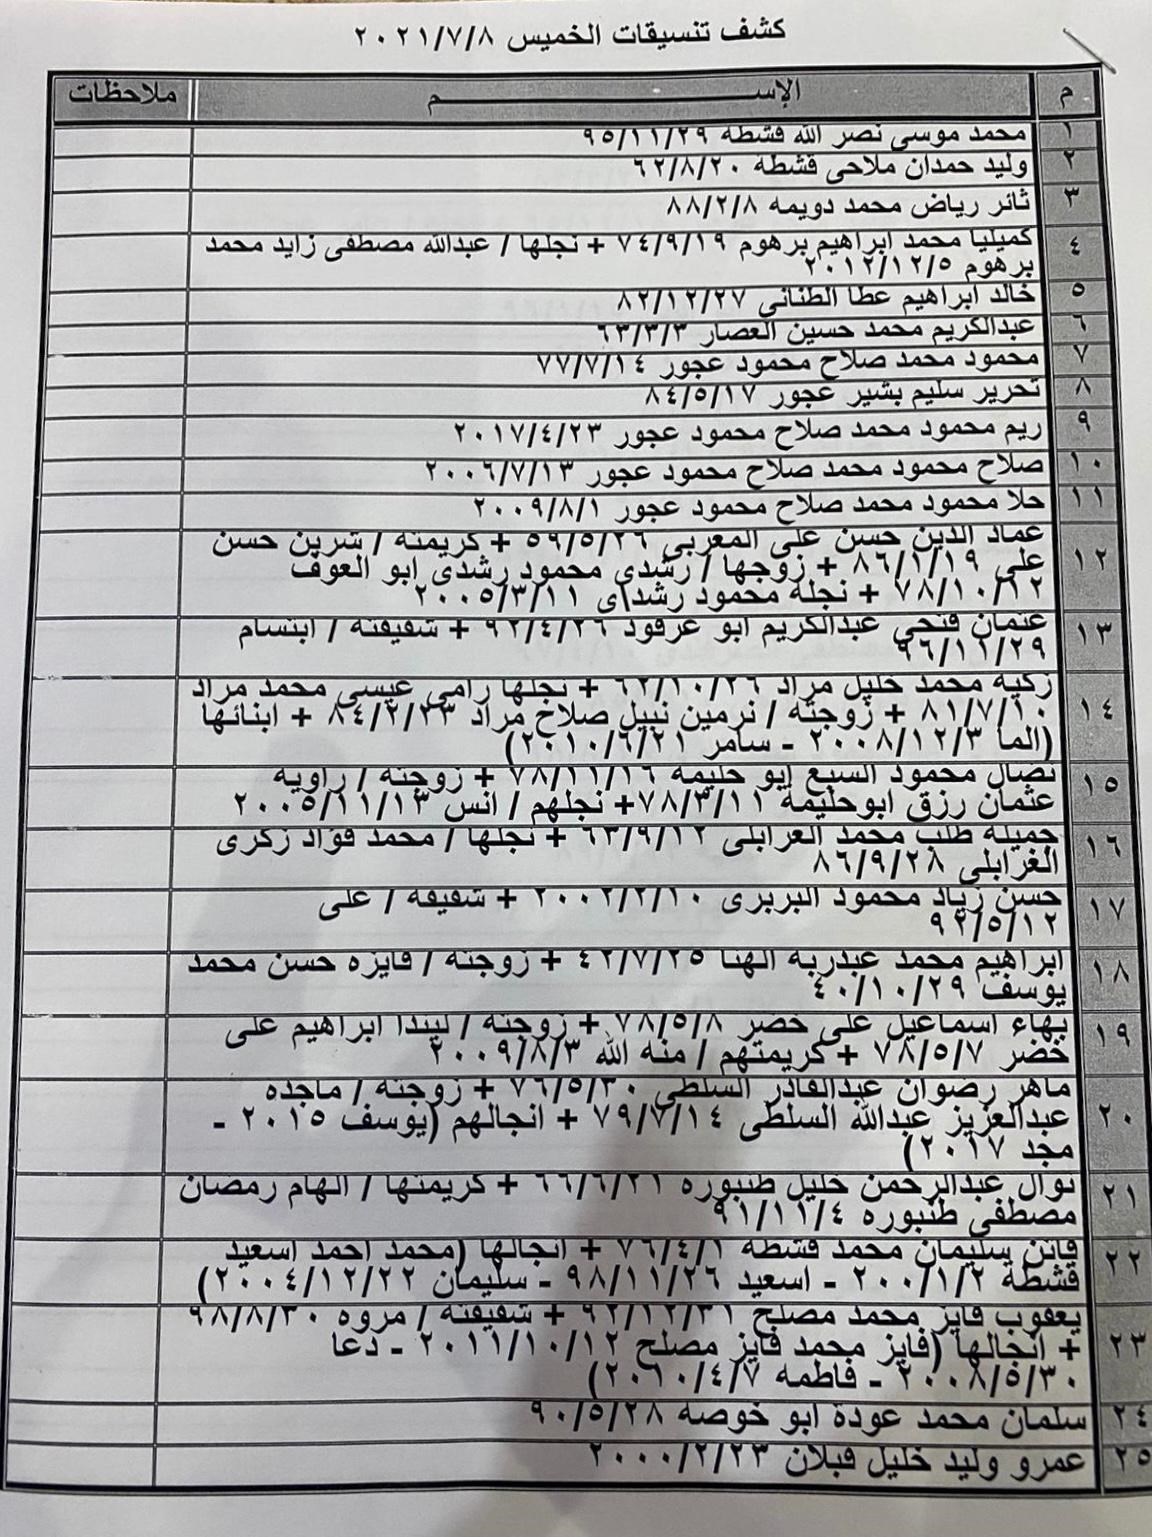 كشف تنسيقات الخميس ٢٠٢١/٧/٨
م الإســــــــم ملاحظات
١ محمد موسى نصر الله قشطه ٩٥/١١/٢٩
٢ وليد حمدان ملاحى قشطه ٦٢/٨/٢٠
٣ ثائر رياض محمد دويمه ٨٨/٢/٨
٤ كميليا محمد ابراهيم برهوم ٧٤/٩/١٩ + نجلها / عبدالله مصطفى زايد محمد
برهوم ٢٠١٢/١٢/٥
٥ خالد ابراهيم عطا الطنانى ٨٢/١٢/٢٧
٦ عبدالكريم محمد حسين العصار ٦٣/٣/٣
٧ محمود محمد صلاح محمود عجور ٧٧/٧/١٤
٨ تحرير سليم بشير عجور ٨٤/٥/١٧
٩ ريم محمود محمد صلاح محمود عجور ٢٠١٧/٤/٢٣
١٠ صلاح محمود محمد صلاح محمود عجور ٢٠٠٦/٧/١٣
١١ حلا محمود محمد صلاح محمود عجور ٢٠٠٩/٨/١
١٢ عماد الدين حسن على المغربى ٥٩/٥/٢٦ + كريمته / شرين حسن
على ٨٦/١/١٩ + زوجها / رشدى محمود رشدى ابو العوف
٧٨/١٠/١٢ + نجله محمود رشداى ٢٠٠٥/٣/١١
١٣ عثمان فتحى عبدالكريم ابو عرقود ٩٢/٤/٢٦ + شقيقته / ابتسام
٩٦/١١/٢٩
١٤ زكيه محمد خليل مراد ٦٢/١٠/٢٦ + نجلها رامى عيسى محمد مراد
٨١/٧/١٠ + زوجته / نرمين نبيل صلاح مراد ٨٤/٢/٢٣ + ابنائها
(الما ٢٠٠٨/١٢/٣ - سامر ٢٠١٠/٦/٢١)
١٥ نضال محمود السبع ابو حليمه ٧٨/١١/١٦ + زوجته / راويه
عثمان رزق ابوحليمة ٧٨/٣/١١+ نجلهم / انس ٢٠٠٥/١١/١٣
١٦ جميله طلب محمد الغرابلى ٦٣/٩/١٢ + نجلها / محمد فؤاد زكرى
الغرابلى ٨٦/٩/٢٨
١٧ حسن زياد محمود البربرى ٢٠٠٢/٢/١٠ + شقيقه / على
٩٢/٥/١٢
١٨ ابراهيم محمد عبدربه الهنا ٤٢/٧/٢٥ + زوجته / فايزه حسن محمد
يوسف ٤٠/١٠/٢٩
١٩ بهاء اسماعيل على خضر ٧٨/٥/٨ + زوجته / ليندا ابراهيم على
خضر ٧٨/٥/٧ + كريمتهم / منه الله ٢٠٠٩/٨/٣
٢٠ ماهر رضوان عبدالقادر السلطى ٧٦/٥/٣٠ + زوجته / ماجده
عبدالعزيز عبدالله السلطى ٧٩/٧/١٤ + انجالهم (يوسف ٢٠١٥ -
مجد ٢٠١٧)
٢١ نوال عبدالرحمن خليل طنبوره ٦٦/٦/٢١ + كريمتها / الهام رمضان
مصطفى طنبوره ٩١/١١/٤
٢٢ فاتن سليمان محمد قشطة ٧٦/٤/١ + انجالها (محمد احمد اسعيد
قشطة ٢٠٠٠/١/٢ - اسعيد ٩٨/١١/٢٦ - سليمان ٢٠٠٤/١٢/٢٢)
٢٣ يعقوب فايز محمد مصلح ٩٢/١٢/٣١ + شقيقته / مروه ٩٨/٨/٣٠
+ انجالها (فايز محمد فايز مصلح ٢٠١١/١٠/١٢ - دعا
٢٠٠٨/٥/٣٠ - فاطمه ٢٠١٠/٤/٧)
٢٤ سلمان محمد عودة ابو خوصه ٩٠/٥/٢٨
٢٥ عمرو وليد خليل قبلان ٢٠٠٠/٢/٢٣